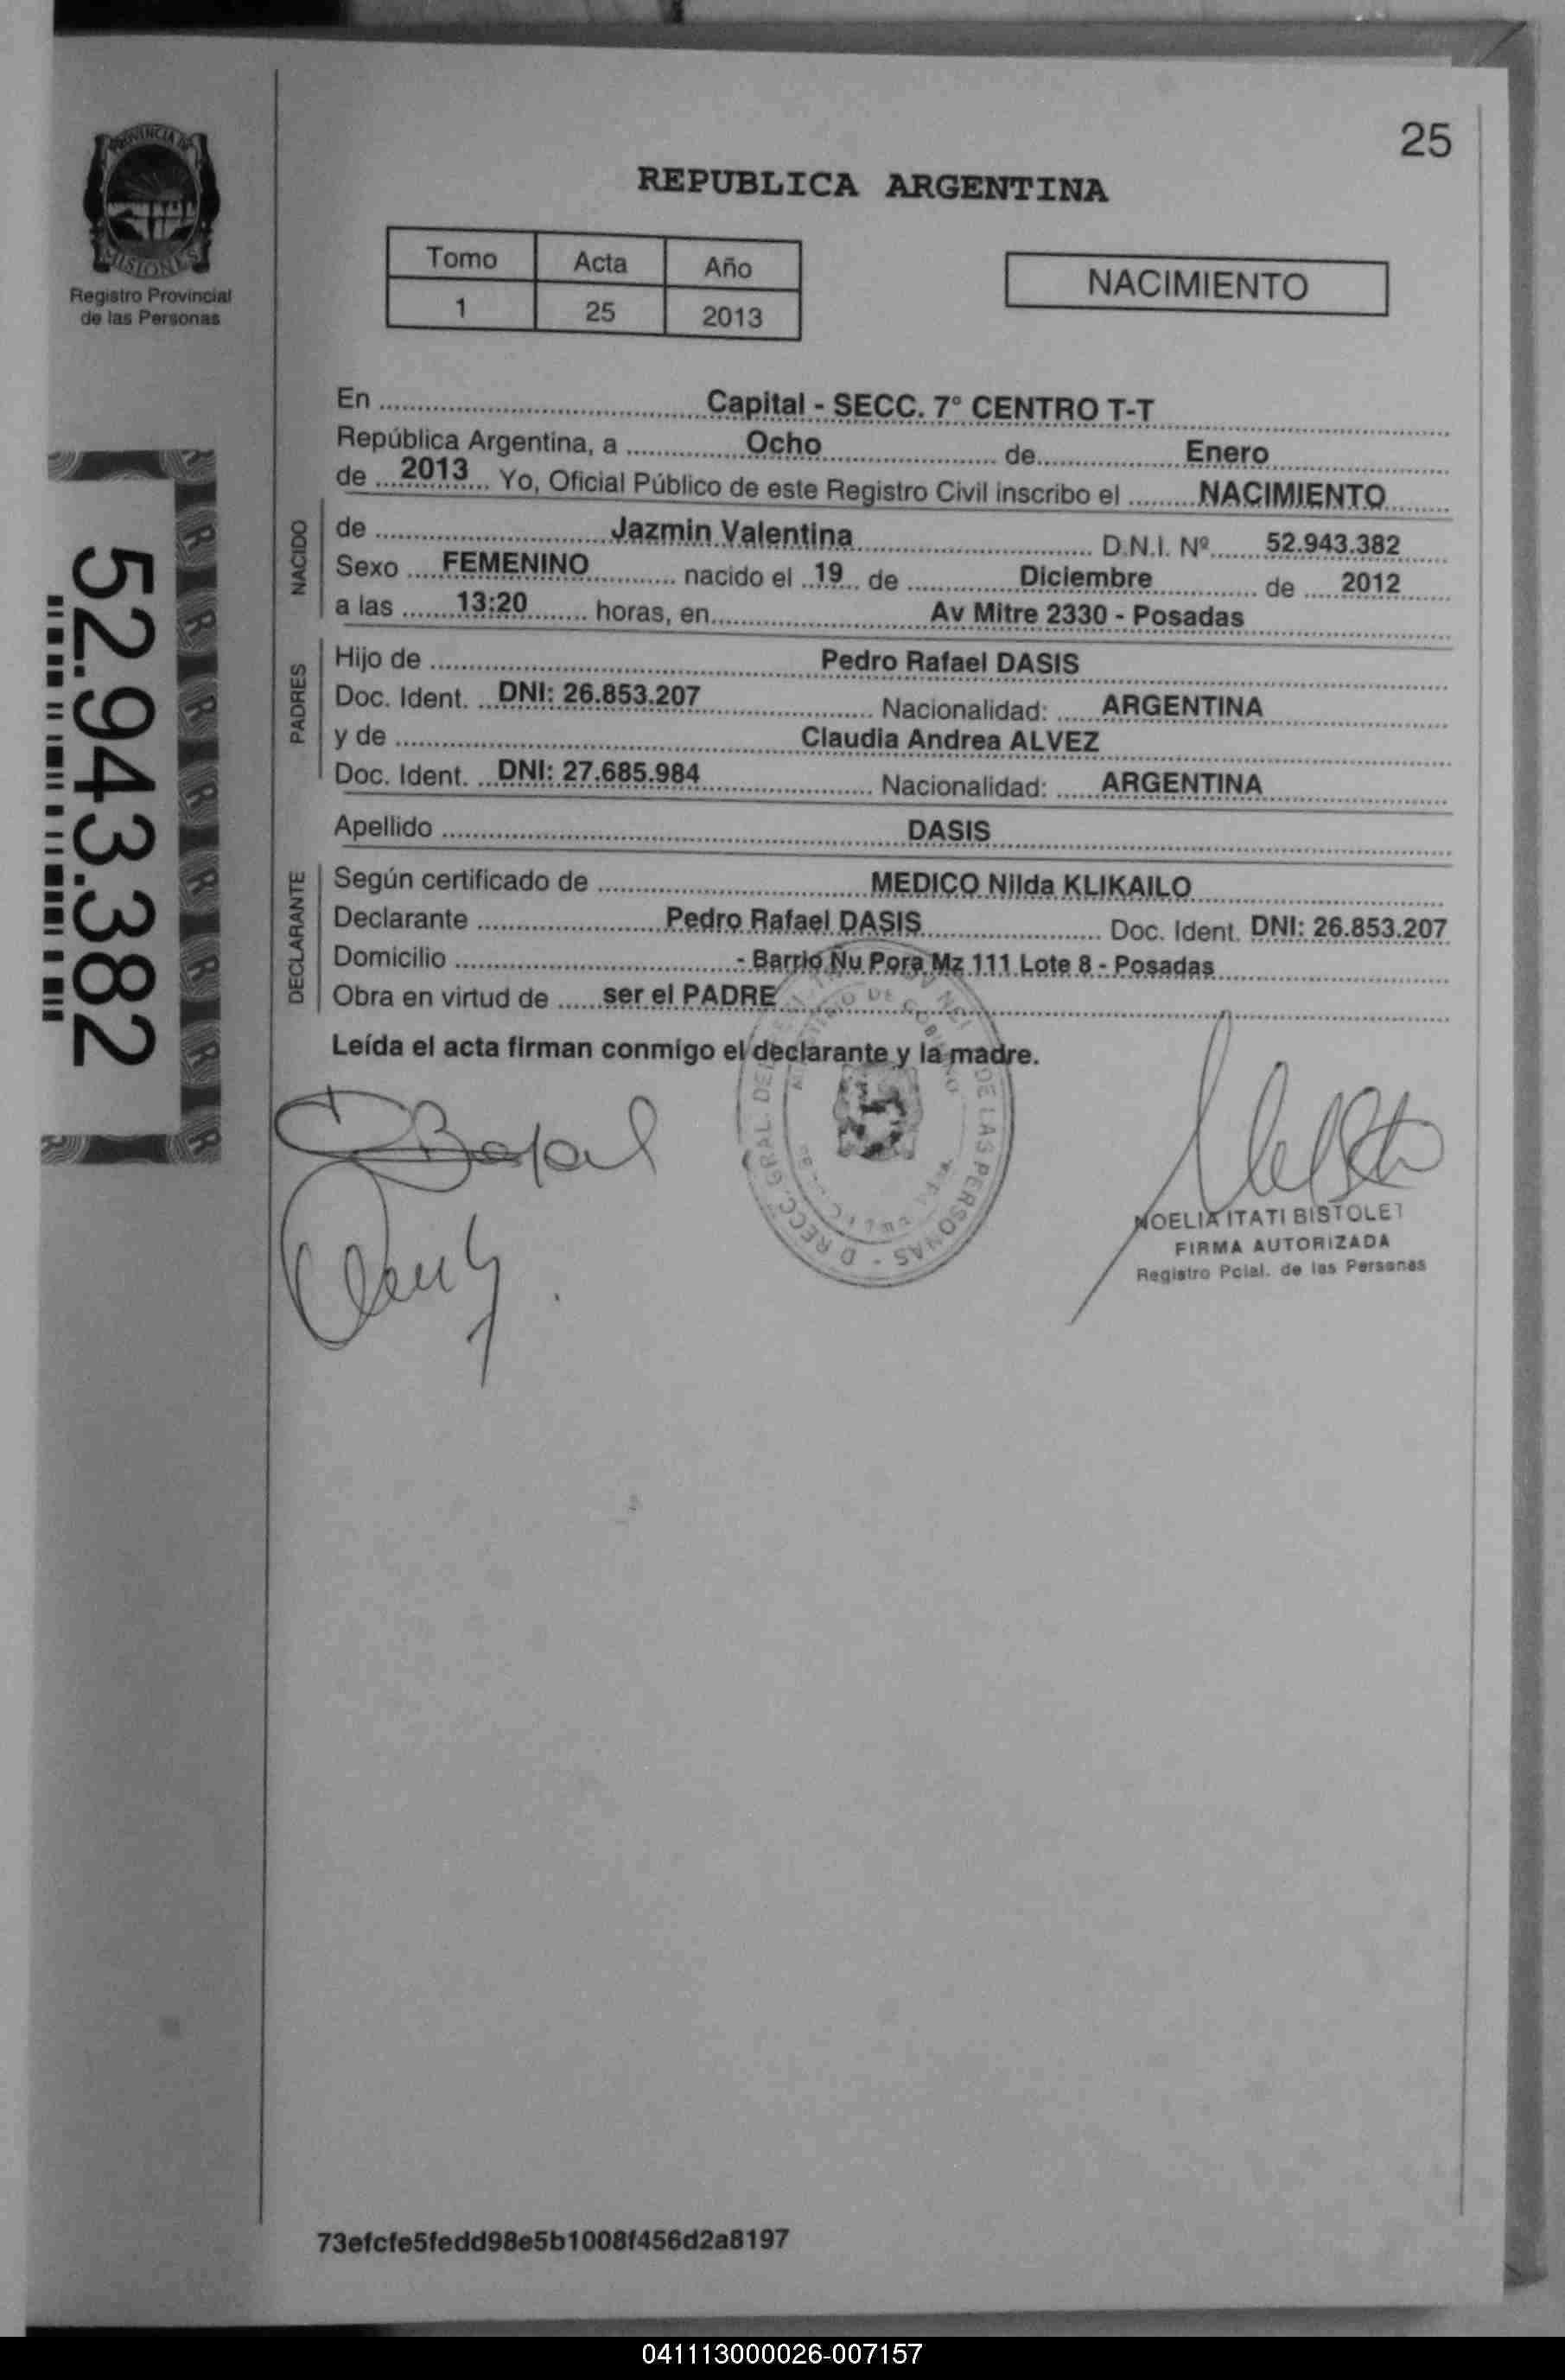 25
REPUBLICA ARGENTINA
PROVINCIA DE
MISIONES
Registro Provincial
de las Personas
Tomo Acta Año
1 25 2013
NACIMIENTO
En Capital - SECC. 7° CENTRO T-T
República Argentina, a Ocho de Enero
de 2013 Yo, Oficial Público de este Registro Civil inscribo el NACIMIENTO
NACIDO
de Jazmin Valentina D.N.I. Nº 52.943.382
Sexo FEMENINO nacido el 19 de Diciembre de 2012
a las 13:20 horas, en Av Mitre 2330 - Posadas
PADRES
Hijo de Pedro Rafael DASIS
Doc. Ident. DNI: 26.853.207 Nacionalidad: ARGENTINA
y de Claudia Andrea ALVEZ
Doc. Ident. DNI: 27.685.984 Nacionalidad: ARGENTINA
Apellido DASIS
DECLARANTE
Según certificado de MEDICO Nilda KLIKAILO
Declarante Pedro Rafael DASIS Doc. Ident. DNI: 26.853.207
Domicilio - Barrio Ñu Pora Mz 111 Lote 8 - Posadas
Obra en virtud de ser el PADRE
Leída el acta firman conmigo el declarante y la madre.
DE LAS PERSONAS
NOELIA ITATI BISTOLET
FIRMA AUTORIZADA
Registro Pcial. de las Personas
52.943.382
73efcfe5fedd98e5b1008f456d2a8197
041113000026-007157